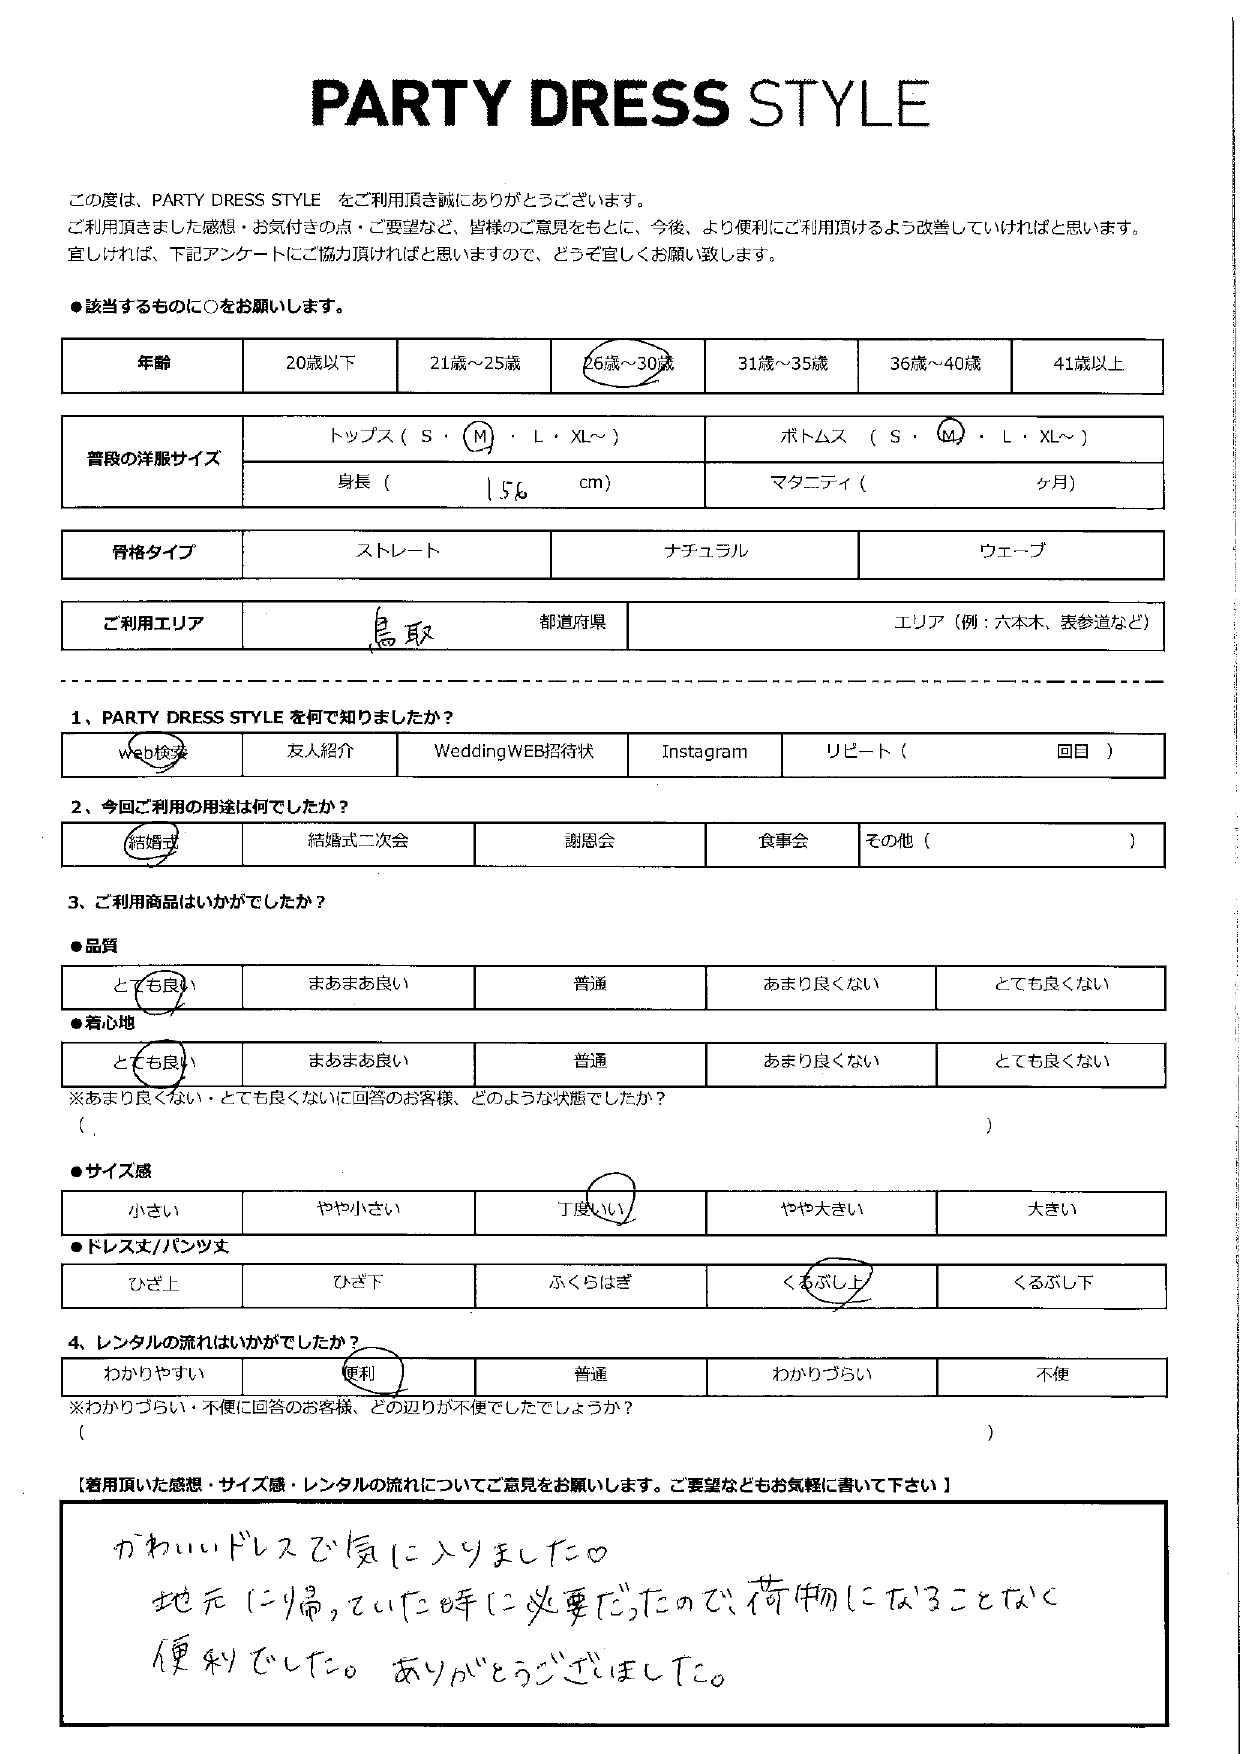 PARTY DRESS STYLE
この度は、PARTY DRESS STYLE をご利用頂き誠にありがとうございます。
ご利用頂きました感想・お気付きの点・ご要望など、皆様のご意見をもとに、今後、より便利にご利用頂けるよう改善していければと思います。
宜しければ、下記アンケートにご協力頂ければと思いますので、どうぞ宜しくお願い致します。
●該当するものに○をお願いします。
年齢 20歳以下 21歳～25歳 26歳～30歳 31歳～35歳 36歳～40歳 41歳以上
普段の洋服サイズ トップス ( S ・ M ・ L ・ XL～ ) ボトムス ( S ・ M ・ L ・ XL～ )
身長 ( 156 cm) マタニティ ( ヶ月)
骨格タイプ ストレート ナチュラル ウェーブ
ご利用エリア 鳥取 都道府県 エリア（例：六本木、表参道など）
1、PARTY DRESS STYLE を何で知りましたか？
web検索 友人紹介 WeddingWEB招待状 Instagram リピート ( 回目 )
2、今回ご利用の用途は何でしたか？
結婚式 結婚式二次会 謝恩会 食事会 その他 ( )
3、ご利用商品はいかがでしたか？
●品質
とても良い まあまあ良い 普通 あまり良くない とても良くない
●着心地
とても良い まあまあ良い 普通 あまり良くない とても良くない
※あまり良くない・とても良くないに回答のお客様、どのような状態でしたか？
( )
●サイズ感
小さい やや小さい 丁度いい やや大きい 大きい
●ドレス丈/パンツ丈
ひざ上 ひざ下 ふくらはぎ くるぶし上 くるぶし下
4、レンタルの流れはいかがでしたか？
わかりやすい 便利 普通 わかりづらい 不便
※わかりづらい・不便に回答のお客様、どの辺りが不便でしたでしょうか？
( )
【着用頂いた感想・サイズ感・レンタルの流れについてご意見をお願いします。ご要望などもお気軽に書いて下さい 】
かわいいドレスで気に入りました♡
地元に帰っていた時に必要だったので、荷物になることなく
便利でした。ありがとうございました。